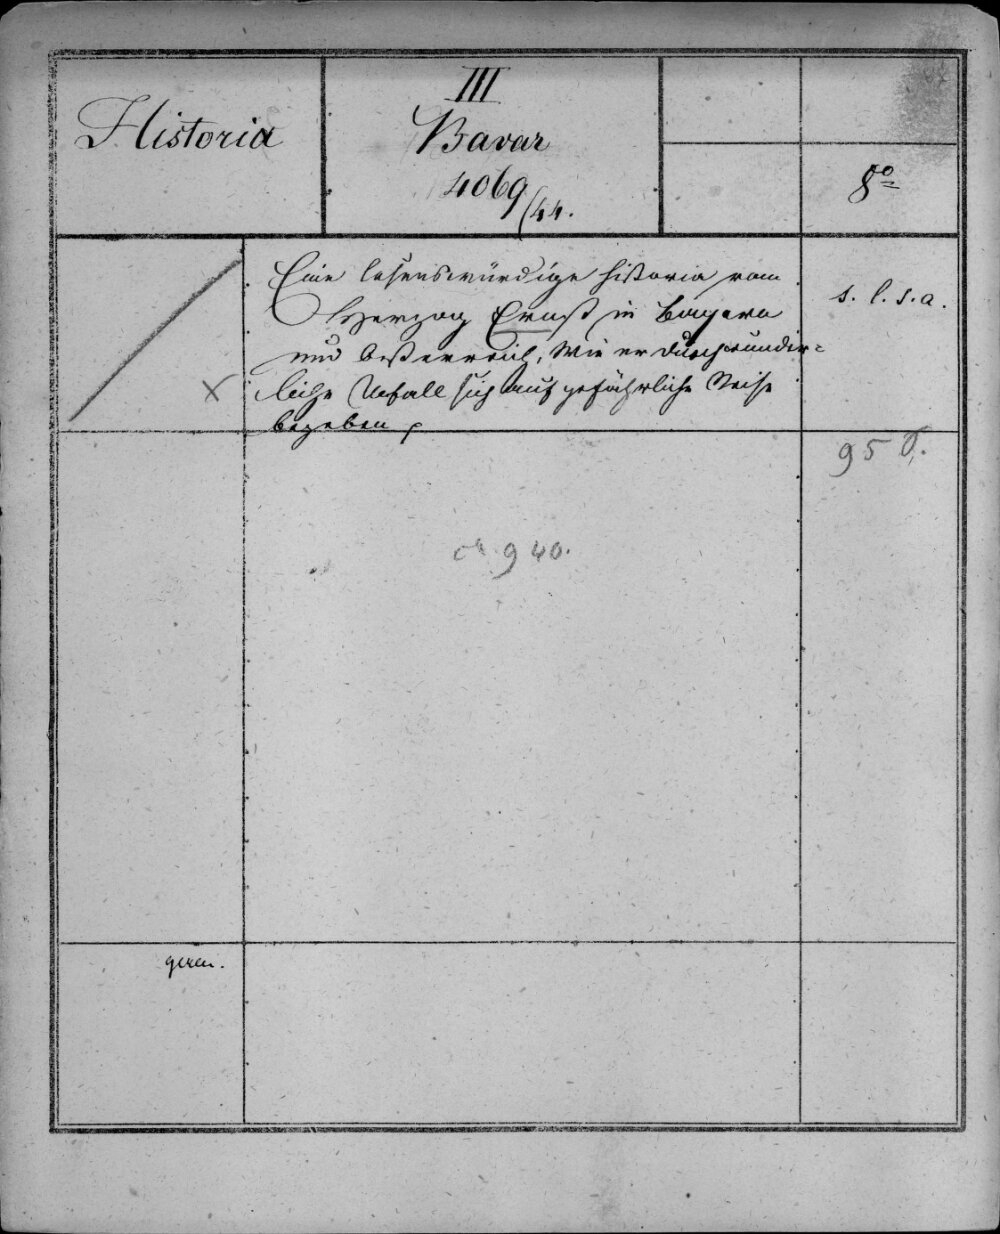 Historia
III
Bavar
4069/44.
8º
Eine lesenswürdige Historia vom
Herzog Ernst in Bayern
und Oesterreich, Wie er durch wunder=
liche Unfall sich auf gefährliche Reise
begeben
s. l. s. a.
95
940.